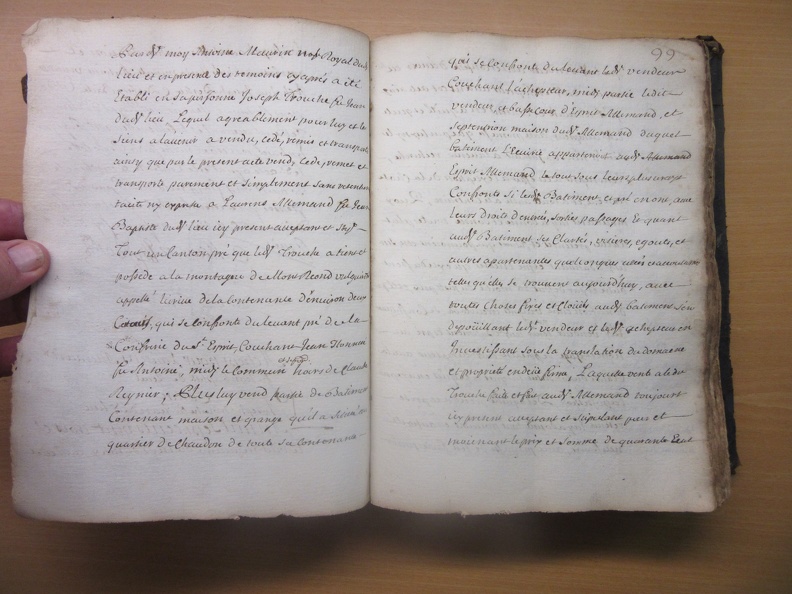 Pardt moy Antoine Maurin nore Royal dud
lieu et en presance des temoins cy apres a été
Etabli en sa personne Joseph Trouche feu Jean
dudt lieu Lequel agreablement pour luy et les
siens a lavenir a vendu, cedé, remis et transporté
ainsy que par le present acte vend, cede, remet et
transporte purement et simplement sans retention
tacite ny expresse a Laurens Allemand feu Jean
Baptiste dudt lieu icy present acceptant et
Tout un Canton pré que ledt Trouche a tient et
possede a la montagne de vulgairement
appellé de la Contenance d'environ deux
qui se Confronte du levant pré de la
Confrerie du St Esprit, Couchant Jean
feu Antoine, midy le Commun hoirs de Claude
Reynier; Plus luy vend partie de Batiment
Contenant maison et grange qu'il a
quartier de Chaudon de toute sa Contenance
99
qui se Confronte du levant ledt vendeur
Couchant l'achepteur, midy partie ledit
vendeur et basse Cour d'Esprit Allemand, et
Septentrion maison dudt Allemand duquel
batiment L'Ecurie appartenoit audt Allemand
Esprit Allemand
Confronts si ledt Batiment, et pré en ont, avec
leurs Droits d'entrées, sorties passages Et quant
audt Batiment ses Clartés, egouts, et
autres apartenances quelconques
telles qu'elles se trouvent aujourd'huy, avec
toutes Choses fixes et Clouées audt batiment Sen
depouillant ledt vendeur et ledt achepteur en
Investissant sous la translation du domaine
et proprieté Laquelle vente ledt
Trouche fait et audt Allemand toujours
icy present acceptant et stipulant pour et
moienant le prix et Somme de quarante